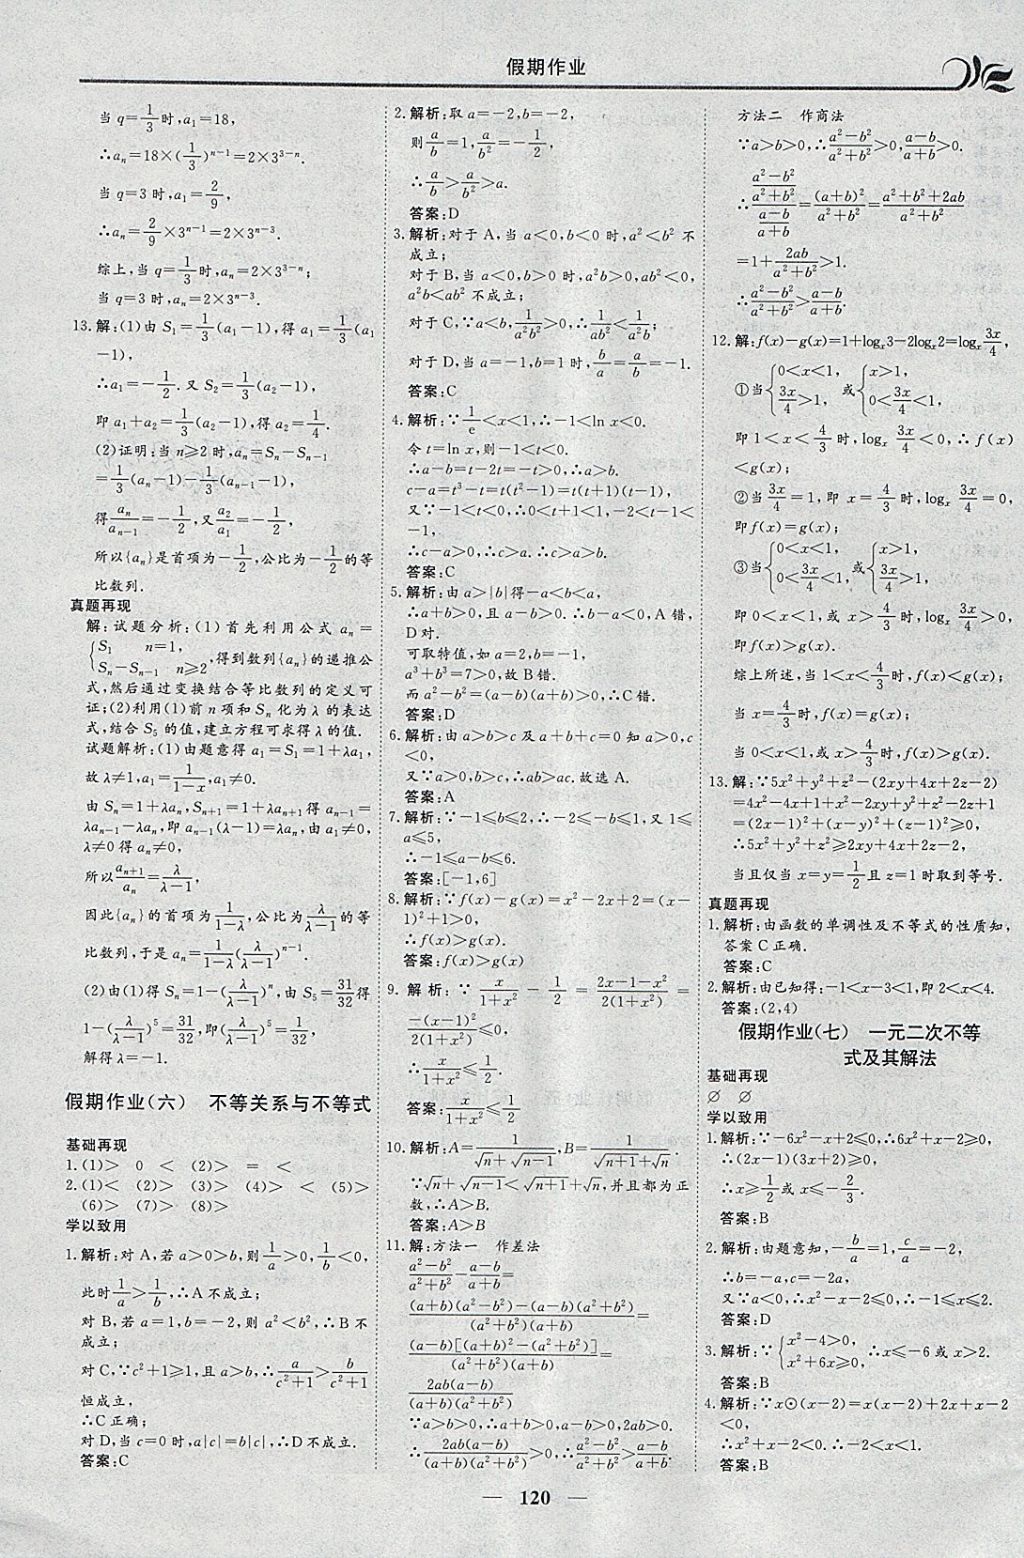 假期作业
当 q=1/3 时,a₁=18,
∴aₙ=18×(1/3)ⁿ⁻¹=2×3³⁻ⁿ.
当 q=3 时,a₁=2/9,
∴aₙ=2/9×3ⁿ⁻¹=2×3ⁿ⁻³.
综上,当 q=1/3 时,aₙ=2×3³⁻ⁿ;
当 q=3 时,aₙ=2×3ⁿ⁻³.
13.解:(1)由 S₁=1/3(a₁-1),得 a₁=1/3(a₁
-1),
∴a₁=-1/2.又 S₂=1/3(a₂-1),
即 a₁+a₂=1/3(a₂-1),得 a₂=1/4.
(2)证明:当 n≥2 时,aₙ=Sₙ-Sₙ₋₁
=1/3(aₙ-1)-1/3(aₙ₋₁-1),
得 aₙ/aₙ₋₁=-1/2,又 a₂/a₁=-1/2,
所以{aₙ}是首项为-1/2,公比为-1/2的等
比数列.
真题再现
解:试题分析:(1)首先利用公式 aₙ=
{S₁ n=1,
Sₙ-Sₙ₋₁ n≥2,得到数列{aₙ}的递推公
式,然后通过变换结合等比数列的定义可
证;(2)利用(1)前 n 项和 Sₙ 化为 λ 的表达
式,结合 S₅ 的值,建立方程可求得 λ 的值.
试题解析:(1)由题意得 a₁=S₁=1+λa₁,
故 λ≠1,a₁=1/(1-x),a₁≠0.
由 Sₙ=1+λaₙ,Sₙ₊₁=1+λaₙ₊₁得 aₙ₋₁=
λaₙ₋₁-λaₙ,即 aₙ₋₁(λ-1)=λaₙ,由 a₁≠0,
λ≠0 得 aₙ≠0,
所以 aₙ₊₁/aₙ=λ/(λ-1).
因此{aₙ}的首项为 1/(1-λ),公比为 λ/(λ-1)的等
比数列,于是 aₙ=1/(1-λ)(λ/(λ-1))ⁿ⁻¹
(2)由(1)得 Sₙ=1-(λ/(λ-1))ⁿ,由 S₅=31/32得
1-(λ/(λ-1))⁵=31/32,即(λ/(λ-1))⁵=1/32
解得 λ=-1.
假期作业(六) 不等关系与不等式
基础再现
1.(1)> 0 < (2)> = <
2.(1)< (2)> (3)> (4)> < (5)>
(6)> (7)> (8)>
学以致用
1.解析:对 A,若 a>0>b,则 1/a>0,1/b<0,
此时 1/a>1/b,∴A 不成立;
对 B,若 a=1,b=-2,则 a²<b²,∴B 不
成立;
对 C,∵c²+1≥1,且 a>b,∴a/(c²+1)>b/(c²+1)
恒成立,
∴C 正确;
对 D,当 c=0 时,a|c|=b|c|,∴D 不成立.
答案:C
2.解析:取 a=-2,b=-2,
则 a/b=1,a/b²=-1/2,
∴a/b>a/b²>a.
答案:D
3.解析:对于 A,当 a<0,b<0 时,a²<b² 不
成立;
对于 B,当 a<0,b>0 时,a²b>0,ab²<0,
a²b<ab² 不成立;
对于 C,∵a<b,1/(a²b²)>0,∴1/(ab²)<1/(a²b);
对于 D,当 a=-1,b=1 时,b/a=a/b=-1.
答案:C
4.解析:∵1/e<x<1,∴-1<ln x<0.
令 t=ln x,则-1<t<0.
∴a-b=t-2t=-t>0,∴a>b.
c-a=t³-t=t(t²-1)=t(t+1)(t-1),
又∵-1<t<0,∴0<t+1<1,-2<t-1<
-1,
∴c-a>0,∴c>a.∴c>a>b.
答案:C
5.解析:由 a>|b|得-a<b<a,
∴a+b>0,且 a-b>0.∴b-a<0,A 错,
D 对.
可取特值,如 a=2,b=-1,
a³+b³=7>0,故 B 错.
而 a²-b²=(a-b)(a+b)>0,∴C 错.
答案:D
6.解析:由 a>b>c 及 a+b+c=0 知 a>0,c
<0,
又∵a>0,b>c,∴ab>ac.故选 A.
答案:A
7.解析:∵-1≤b≤2,∴-2≤-b≤1,又 1≤
a≤5,
∴-1≤a-b≤6.
答案:[-1,6]
8.解析:∵f(x)-g(x)=x²-2x+2=(x-
1)²+1>0,
∴f(x)>g(x).
答案:f(x)>g(x)
9.解析:∵x/(1+x²)-1/2=(2x-1-x²)/(2(1+x²))=
-(x-1)²/(2(1+x²))≤0,
∴x/(1+x²)≤1/2.
答案:x/(1+x²)≤1/2
10.解析:A=1/(√n+√(n-1)),B=1/(√(n+1)+√n).
∵√n+√(n-1)<√(n+1)+√n,并且都为正
数,∴A>B.
答案:A>B
11.解:方法一 作差法
(a²-b²)/(a²+b²)-(a-b)/(a+b)=
((a+b)(a²-b²)-(a-b)(a²+b²))/((a²+b²)(a+b))=
((a-b)[(a+b)²-(a²+b²)])/((a²+b²)(a+b))=
2ab(a-b)/((a+b)(a²+b²))
∵a>b>0,∴a+b>0,a-b>0,2ab>0.
∴2ab(a-b)/((a+b)(a²+b²))>0,∴(a²-b²)/(a²+b²)>(a-b)/(a+b).
方法二 作商法
∵a>b>0,∴(a²-b²)/(a²+b²)>0,(a-b)/(a+b)>0.
∴((a²-b²)/(a²+b²))/((a-b)/(a+b))=(a+b)²/(a²+b²)=(a²+b²+2ab)/(a²+b²)
=1+2ab/(a²+b²)>1.
∴(a²-b²)/(a²+b²)>(a-b)/(a+b).
12.解:f(x)-g(x)=1+logₓ3-2logₓ2=logₓ 3x/4,
①当{0<x<1, 3x/4>1, 或{x>1, 0<3x/4<1,
即 1<x<4/3时,logₓ 3x/4<0,∴f(x)
<g(x);
②当 3x/4=1,即 x=4/3时,logₓ 3x/4=0,
即 f(x)=g(x);
③当{0<x<1, 0<3x/4<1, 或{x>1, 3x/4>1,
即 0<x<1,或 x>4/3时,logₓ 3x/4>0,
即 f(x)>g(x).
综上所述,当 1<x<4/3时,f(x)<g(x);
当 x=4/3时,f(x)=g(x);
当 0<x<1,或 x>4/3时,f(x)>g(x).
13.解:∵5x²+y²+z²-(2xy+4x+2z-2)
=4x²-4x+1+x²-2xy+y²+z²-2z+1
=(2x-1)²+(x-y)²+(z-1)²≥0,
∴5x²+y²+z²≥2xy+4x+2z-2,
当且仅当 x=y=1/2且 z=1 时取到等号.
真题再现
1.解析:由函数的单调性及不等式的性质知,
答案 C 正确.
答案:C
2.解析:由已知得:-1<x-3<1,即 2<x<4.
答案:(2,4)
假期作业(七) 一元二次不等
式及其解法
基础再现
∅ ∅
学以致用
1.解析:∵-6x²-x+2≤0,∴6x²+x-2≥0,
∴(2x-1)(3x+2)≥0,
∴x≥1/2或 x≤-2/3.
答案:B
2.解析:由题意知,-b/a=1,c/a=-2,
∴b=-a,c=-2a,
又∵a<0,∴x²-x-2≤0,∴-1≤x≤2.
答案:D
3.解析:∵{x²-4>0, x²+6x≥0, ∴x≤-6 或 x>2.
答案:B
4.解析:∵x⊙(x-2)=x(x-2)+2x+x-2
<0,
∴x²+x-2<0.∴-2<x<1.
答案:B
— 120 —